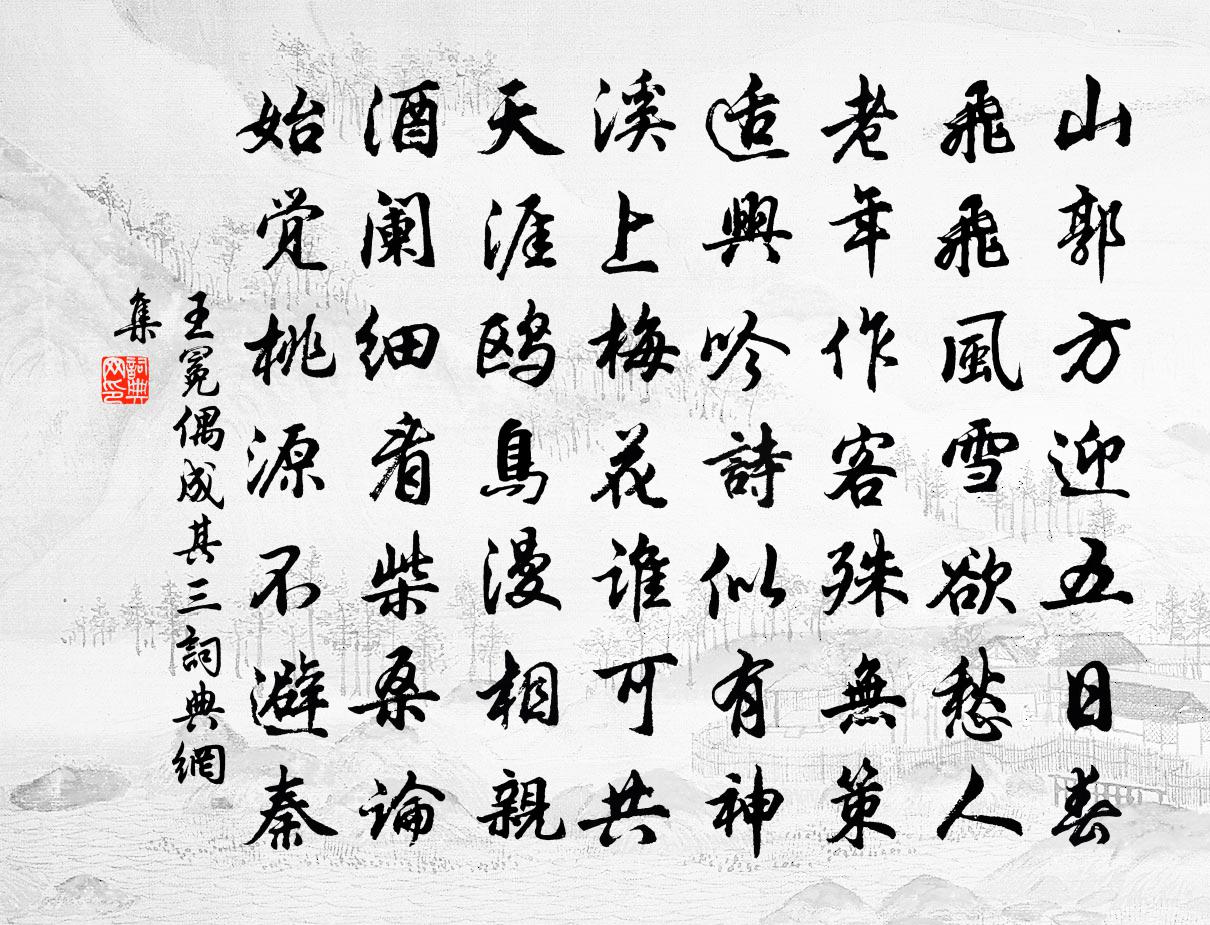 山郭方迎五日春
飛飛風雪欲愁人
老年作客殊無策
适興吟詩似有神
溪上梅花谁可共
天涯鸥鳥漫相親
酒阑细看柴桑論
始觉桃源不避秦
王冕偶成其三詞典網
集
詞典
网印